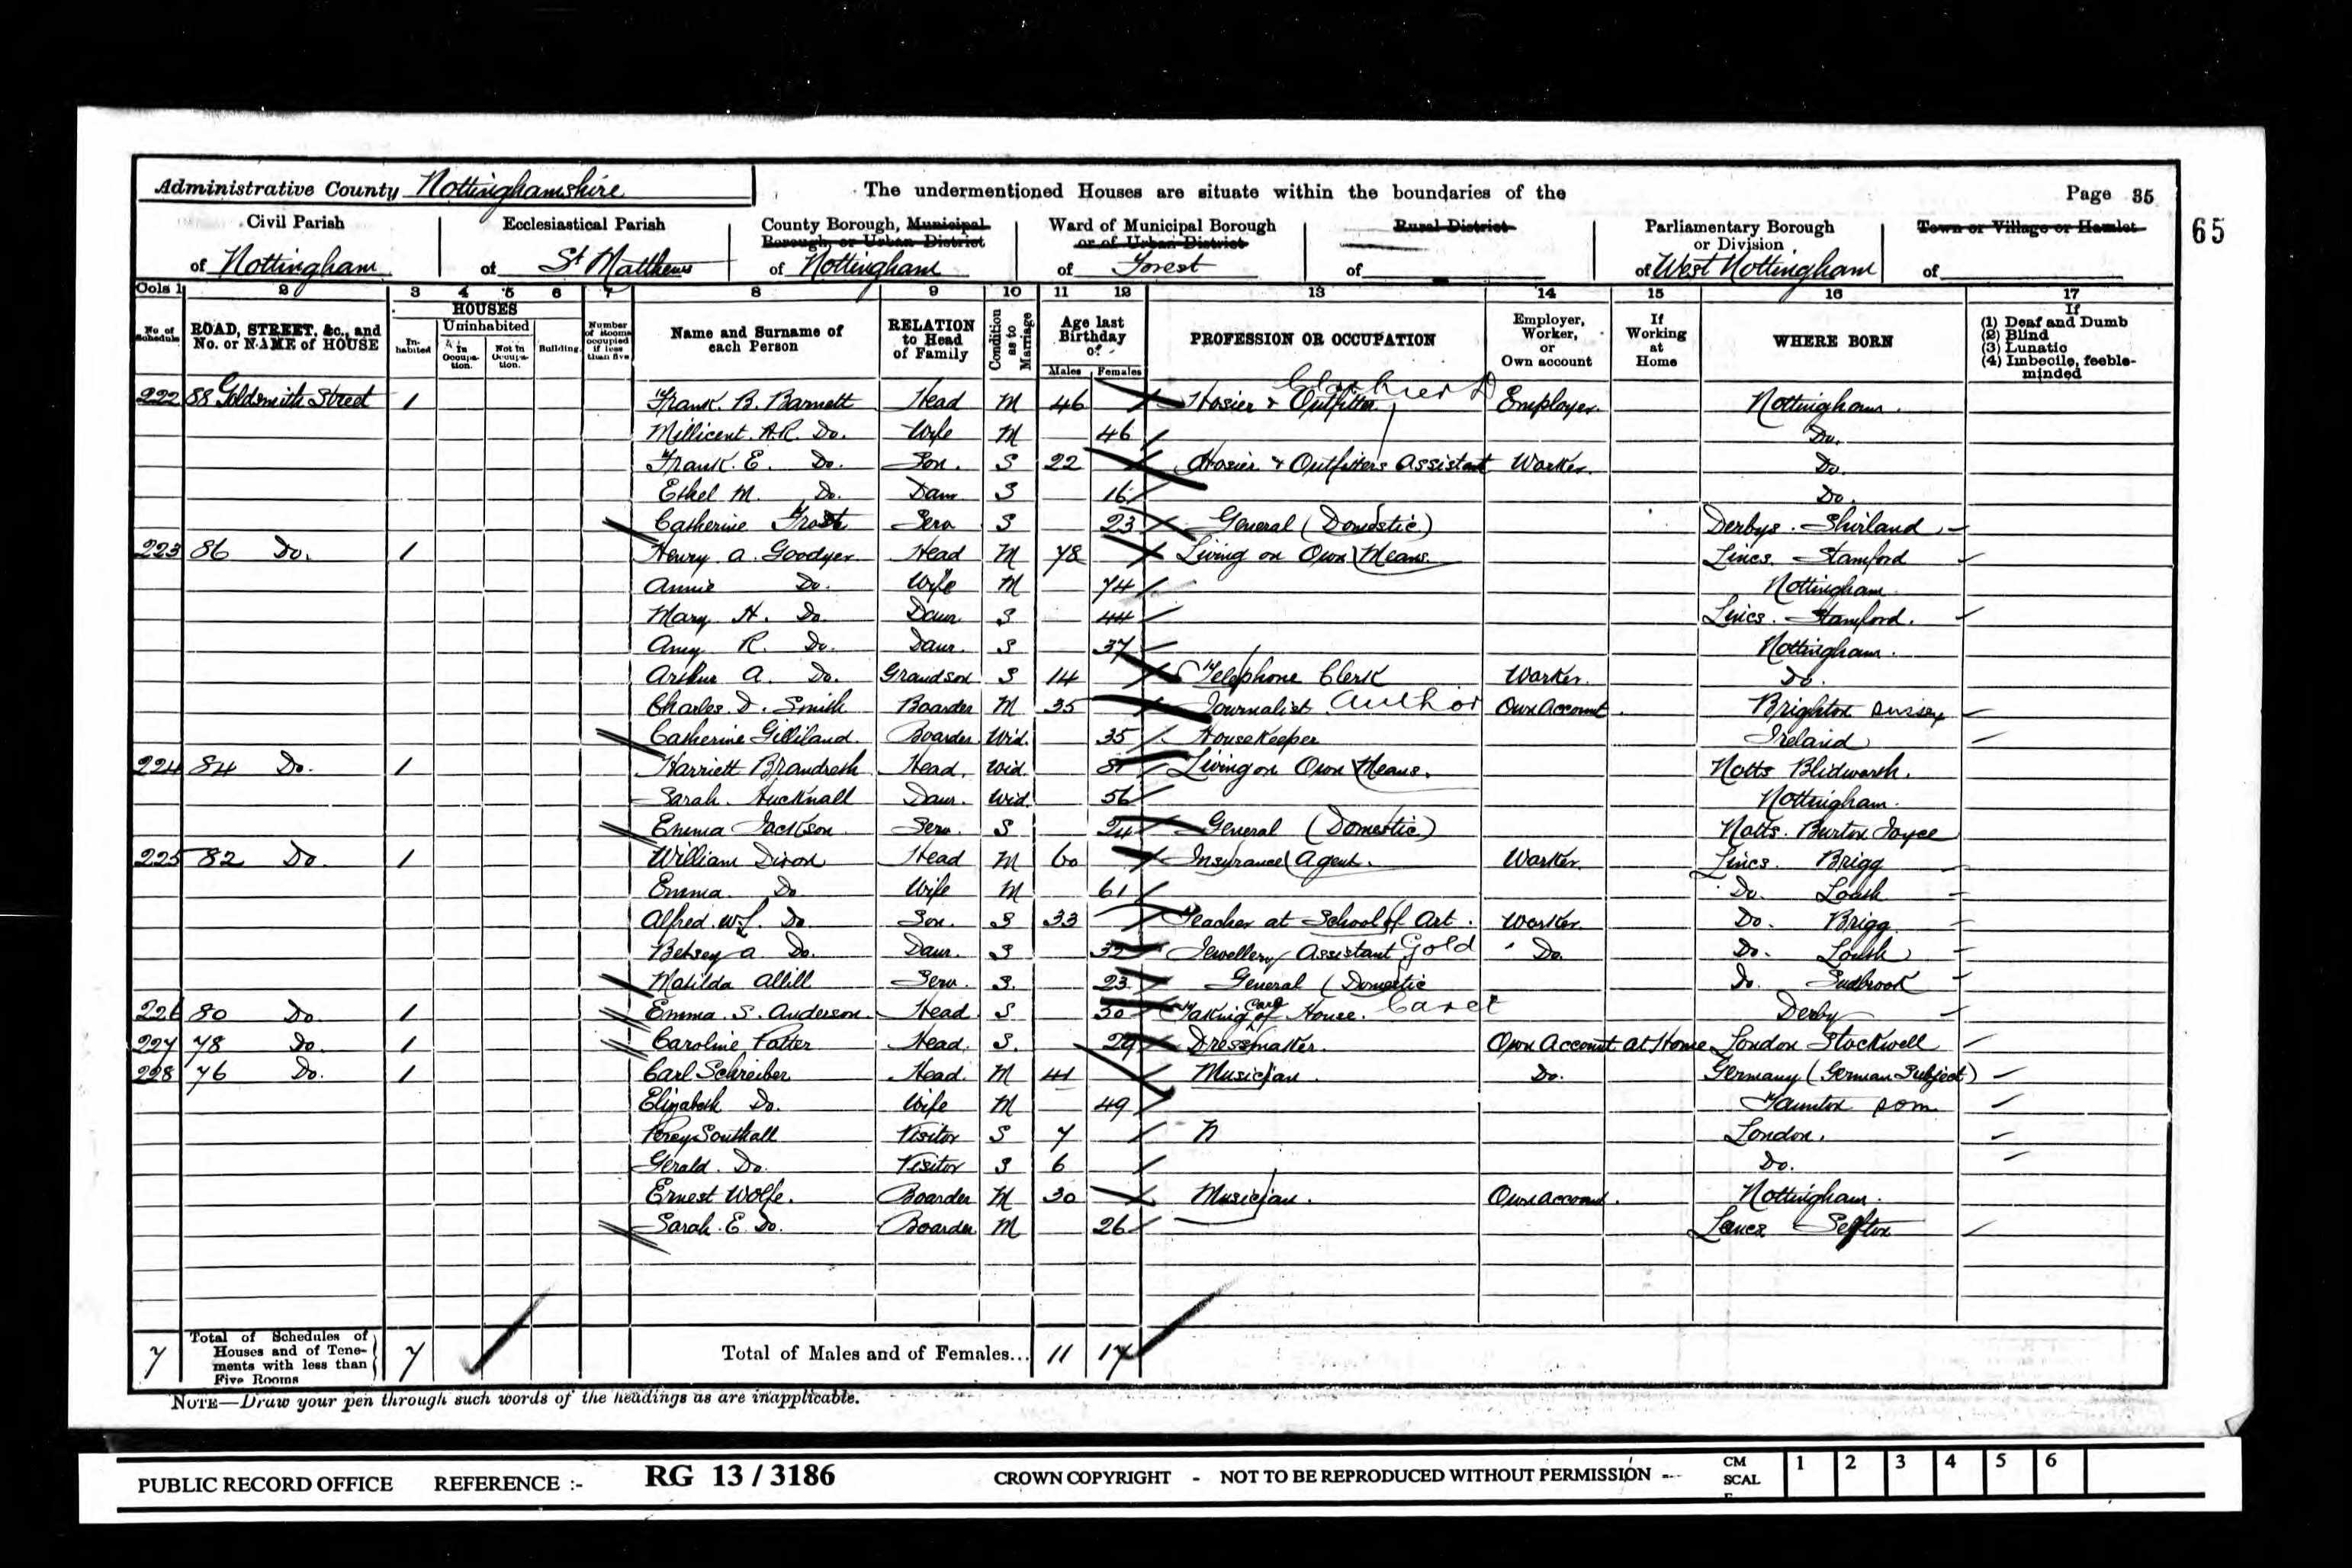 Administrative County Nottinghamshire The undermentioned Houses are situate within the boundaries of the Page 35
65
Civil Parish of Nottingham
Ecclesiastical Parish of St Matthews
County Borough, Municipal Borough, or Urban District of Nottingham
Ward of Municipal Borough or of Urban District of Forest
Rural District of
Parliamentary Borough or Division of West Nottingham
Town or Village or Hamlet of
Cols 1 2 3 4 5 6 7 8 9 10 11 12 13 14 15 16 17
No. of Schedule
ROAD, STREET, &c., and No. or NAME of HOUSE
HOUSES
Inhabited
Uninhabited
In Occupation.
Not in Occupation.
Building
Number of Rooms occupied if less than five
Name and Surname of each Person
RELATION to Head of Family
Condition as to Marriage
Age last Birthday of
Males Females
PROFESSION OR OCCUPATION
Employer, Worker, or Own account
If Working at Home
WHERE BORN
If (1) Deaf and Dumb (2) Blind (3) Lunatic (4) Imbecile, feeble-minded
222 88 Goldsmith Street 1 Frank. B. Barnett Head M 46 Hosier & Outfitter Employer. Nottingham.
Millicent. A.R. Do. Wife M 46 Do.
Frank. E. Do. Son. S 22 Hosier & Outfitters Assistant Worker. Do
Ethel M. Do. Daur S 16 Do.
Catherine Frost Serv S 23 General (Domestic) Derbys. Shirland
223 86 Do. 1 Henry. A. Goodyer Head M 78 Living on Own Means. Lincs. Stamford
Annie Do. Wife M 74 Nottingham
Mary H. Do. Daur S 44 Lincs. Stamford.
Amy R. Do. Daur. S 37 Nottingham.
Arthur A. Do. Grandson S 14 Telephone Clerk Worker. Do.
Charles. D. Smith Boarder M 35 Journalist Author Own Account Brighton Sussex
Catherine Gilliland. Boarder Wid. 35 Housekeeper Ireland
224 84 Do. 1 Harriett Brandreth Head. Wid. 81 Living on Own Means. Notts Blidworth.
Sarah. Hucknall Daur. Wid. 56 Nottingham.
Emma Jackson Serv. S 24 General (Domestic) Notts. Burton Joyce
225 82 Do. 1 William Dixon Head M 60 Insurance Agent. Worker. Lincs. Brigg
Emma. Do Wife M 61 Do. Louth
Alfred. W.L. Do. Son. S 33 Teacher at School of Art. Worker. Do. Brigg
Betsey A Do. Daur. S 32 Jewellery Assistant Gold Do. Do. Louth
Matilda Serv. S. 23 General (Domestic Do. Sudbrook
226 80 Do. 1 Emma. S. Anderson Head S 30 Taking Care of House. Caret Derby
227 78 Do. 1 Caroline Potter Head. S. 29 Dressmaker. Own Account At Home London Stockwell
228 76 Do. 1 Carl Schreiber Head. M 41 Musician. Do. Germany (German Subject)
Elizabeth Do. Wife M 49 Taunton Som
Percy Southall Visitor S 7 N London.
Gerald. Do. Visitor S 6 Do.
Ernest Wolfe. Boarder M 30 Musician. Own account. Nottingham.
Sarah. E. Do. Boarder M 26 Lancs Sefton
7 Total of Schedules of Houses and of Tenements with less than Five Rooms 7 Total of Males and of Females... 11 17
NOTE—Draw your pen through such words of the headings as are inapplicable.
PUBLIC RECORD OFFICE REFERENCE :- RG 13 / 3186 CROWN COPYRIGHT - NOT TO BE REPRODUCED WITHOUT PERMISSION -
CM SCAL 1 2 3 4 5 6